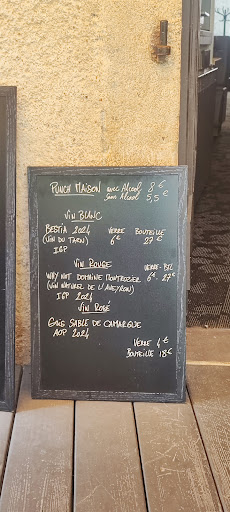 PUNCH MAISON avec Alcool 8 €
Sans Alcool 5,5 €
VIN BLANC
BESTIA 2024 VERRE BOUTEILLE
(VIN DU TARN) 6€ 27 €
IGP
VIN ROUGE
WHY NOT DOMAINE MONTROZIER VERRE - BTL
(VIN NATUREL DE L'AVEYRON) 6€ 27€
IGP 2024
VIN ROSÉ
GRIS SABLE DE CAMARGUE
AOP 2024
VERRE 4€
BOUTEILLE 18€